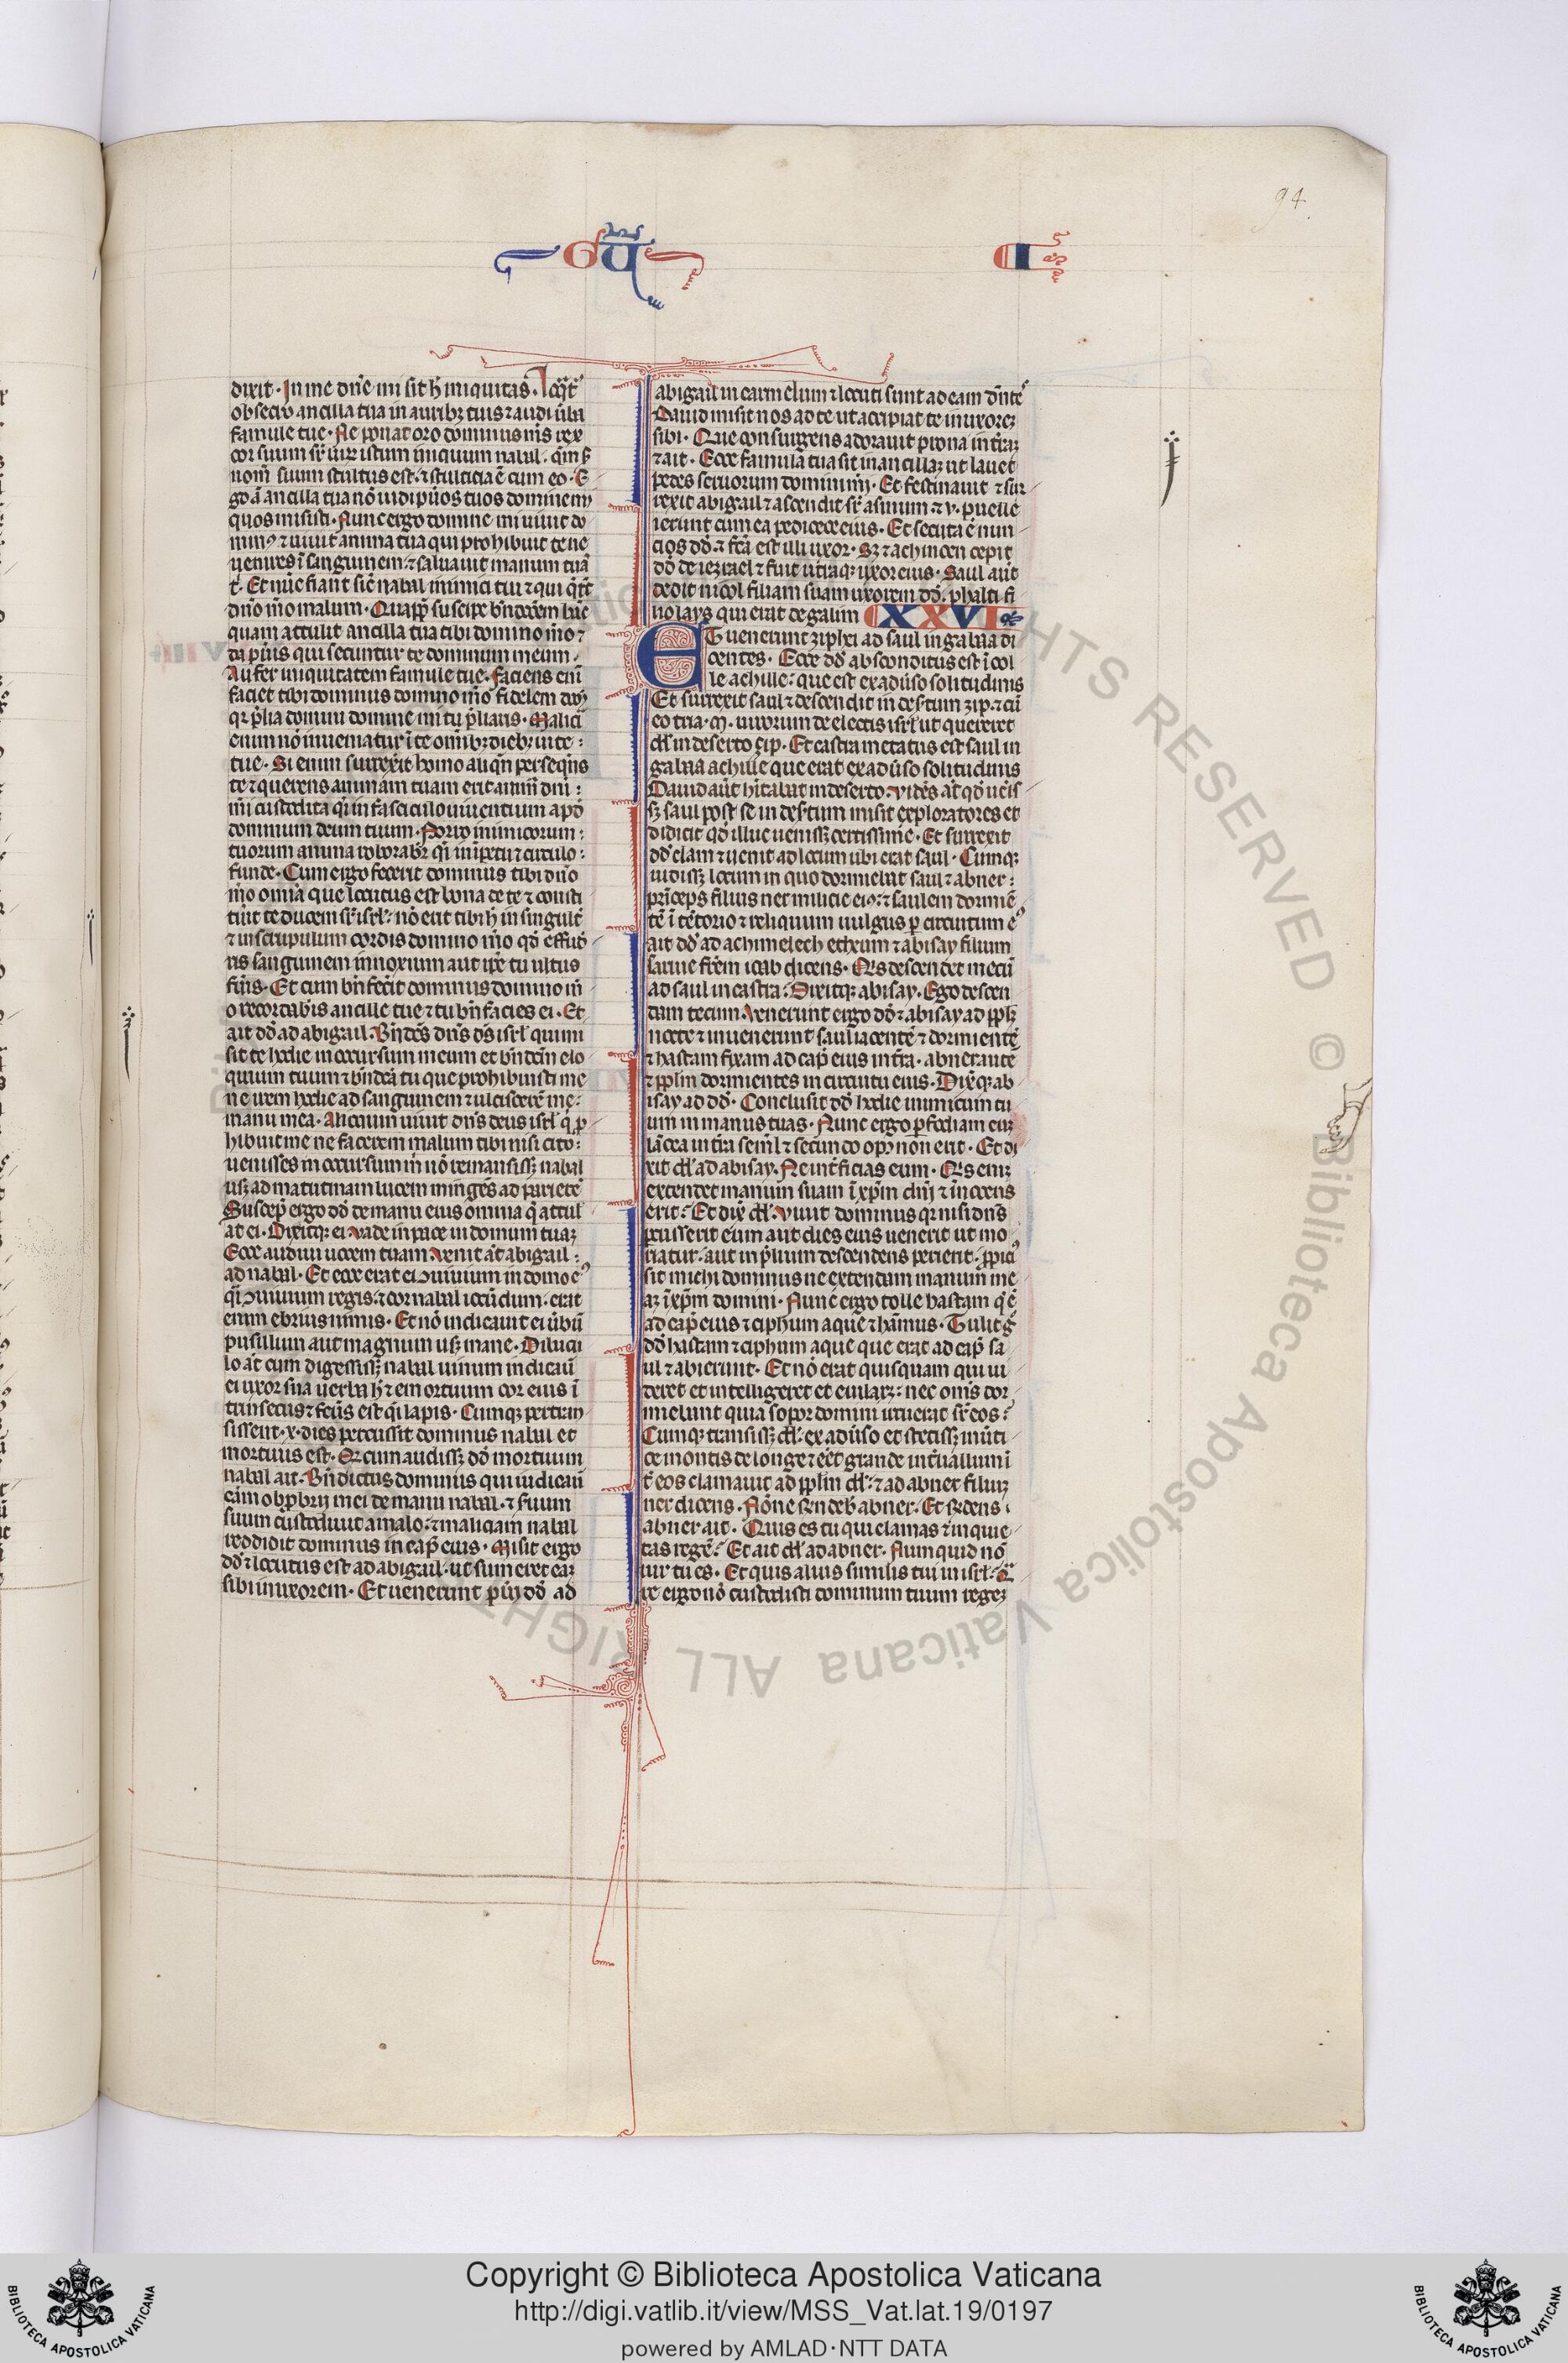 94
GŪ
I
dixit. In me dn̄e mi sit h̄ iniquitas. loq̄at̄
obsecro ancilla tua in auribꝫ tuis ⁊ audi ūba
famule tue. Ne ponat oro dominus m̄s rex
cor suum sr̄ uiꝝ istum iniquum nabal. qm̄ s̄
nom̄ suum stultus est. ⁊ stulticia ē cum eo. E
go aū ancilla tua nō uidi pūos tuos domine mi
quos misisti. Nunc ergo domine mi uiuit do
minꝰ ⁊ uiuit anima tua qui prohibuit te ne
uenires ī sanguinem. ⁊ saluauit manum tuā
t̄. Et nūc fiant sic̄ nabal inimici tui ⁊ qui q̄rūt
dn̄o mō malum. Quapp̄ suscipe bn̄dccēm hāc
quam attulit ancilla tua tibi domino mō ⁊
da pūis qui secuntur te dominum meum.
Aufer iniquitatem famule tue. Faciens eni
faciet tibi dominus domino mō fidelem dom̄
qr p̄lia domini domine mi tu p̄liaris. Malicia
enim nō inueniatur ī te omībꝫ diebꝫ uite
tue. Si enim surrexit homo aliqn̄ perseqn̄s
te ⁊ querens animam tuam erit anima dn̄i
mi custodita q̄i in fasciculo uiuentium apd̄
dominum deum tuum. Porro inimicorum
tuorum anima rotabit̄ q̄i in īpetu ⁊ circulo
funde. Cum ergo fecerit dominus tibi dn̄o
mō omīa que locutus est bona de te ⁊ consti
tuit te ducem sr̄ isrl̄. nō erit tibi h̄ in singult̄
⁊ in scrupulum cordis domino mō qd̄ effud̄
ris sanguinem innoxium aut ip̄e tu ultus
fūis. Et cum bn̄ fecit dominus domino m̄
o recordab̄is ancille tue ⁊ tu bn̄ facies ei. Et
ait dd̄ ad abigail. Bn̄dc̄s dn̄s ds̄ isrl̄ qui mi
sit te hodie in occursum meum et bn̄dcm̄ elo
quium tuum ⁊ bn̄dcā tu que prohibuisti me
ne irem hodie ad sanguinem ⁊ ulciscerer me
manu mea. Alioquin uiuit dn̄s deus isrl̄ q̄ p̄
hibuit me ne facerem malum tibi nisi cito
uenisses in occursum m̄ nō remansissꝫ nabal
usqꝫ ad matutinam lucem mingēs ad parietē
Suscep̄ ergo dd̄ de manu eius omnia q̄ attul
at ei. Dixitqꝫ ei. Vade in pace in domum tuaꝫ
Ecce audiui uocem tuam. Venit āt abigail
ad nabal. Et ecce erat ei ꝯuiuium in domo eꝰ
q̄i ꝯuiuium regis. ⁊ cor nabal iocūdum. erat
enim ebrius nimis. Et nō indicauit ei ūbū
pusillum aut magnum usqꝫ mane. Diluculo
lo āt cum digessissꝫ nabal uinum indicauīt
ei uxor sua uerba h̄ ⁊ emortuum cor eius ī
trinsecus ⁊ fc̄us est q̄i lapis. Cumqꝫ pertran
sissent .x. dies percussit dominus nabal et
mortuus est. Qd̄ cum audissꝫ dd̄ mortuum
nabal ait. Bn̄dictus dominus qui iudicauīt
cām obp̄brij mei de manu nabal. ⁊ suum
suum custodiuit a malo. ⁊ maliciam nabal
reddidit dominus in cap̄ eius. Misit ergo
dd̄ ⁊ locutus est ad abigail. ut sumeret eaꝫ
sibi in uxorem. Et uenerunt pūi dd̄ ad
abigail in carmelum ⁊ locuti sunt ad eam dn̄tes
Dauid misit nos ad te ut accipiat te in uxoreꝫ
sibi. Que consurgens adorauit prona in tr̄aꝫ
⁊ ait. Ecce famula tua sit in ancillaꝫ ut lauet
pedes seruorum domini mi. Et festinauit ⁊ sur
rexit abigail ⁊ ascendit sr̄ asinum ⁊ .v. puelle
ierunt cum ea pedisece eius. Et secuta ē nun
cios dd̄. ⁊ fcā est illi uxor. Sꝫ ⁊ achinoen cepit
dd̄ de iezrael ⁊ fuit utraqꝫ uxor eius. Saul aūt
dedit micol filiam suam uxorem dd̄. phalti fi
lio lays qui erat de galim XXVI
ET uenerunt ziphei ad saul in gabaa di
centes. Ecce dd̄ absconditus est ī col
le achille. que est ex aduso solitudinis
Et surrexit saul ⁊ descendit in destum zip. ⁊ cū
eo tria .m. uirorum de electis isrl̄ ut quereret
dd̄ in deserto zip. Et castra metatus est saul in
gabaa achille que erat ex aduso solitudinis
Dauid aūt h̄itabat in deserto. Vidēs āt qd̄ uēis
sꝫ saul post se in destum misit exploratores et
didicit qd̄ illuc uenissꝫ certissime. Et surrexit
dd̄ clam ⁊ uenit ad locum ubi erat saul. Cumqꝫ
uidissꝫ locum in quo dormiebat saul ⁊ abner
prīceps filius ner milicie eiꝰ. ⁊ saulem dormiē
tē ī tētorio ⁊ reliquum uulgus p circuitum eꝰ
ait dd̄ ad achimelech etheum ⁊ abisay filium
saruie frēm ioab dicens. Qis descendet mecū
ad saul in castra. Dixitqꝫ abisay. Ego descen
dam tecum. Venerunt ergo dd̄ ⁊ abisay ad pplm̄
nocte ⁊ inuenerunt saul iacentē ⁊ dormientē
⁊ hastam fixam ad cap̄ eius in tr̄a. abner autē
⁊ pplm̄ dormientes in circuitu eius. Dix̄qꝫ ab
isay ad dd̄. Conclusit dd̄ hodie inimicum tu
um in manus tuas. Nunc ergo pfodiam euꝫ
lācea in tr̄a semel ⁊ secundo opꝰ non erit. Et di
xit dd̄ ad abisay. Ne intficias eum. Qis enim
extendet manum suam ī xp̄m dn̄i ⁊ īnocens
erit. Et dix̄ dd̄. Viuit dominus qr nisi dn̄s
percusserit eum aut dies eius uenerit ut mo
riatur. aut in p̄lium descendens perierit. pp̄ici
sit michi dominus ne extendam manum me
aꝫ ī xp̄m domini. Nunc ergo tolle hastam q̄ ē
ad cap̄ eius ⁊ ciphum aque ⁊ h̄amus. Tulit g̊
dd̄ hastam ⁊ ciphum aque que erat ad cap̄ sa
ul ⁊ abierunt. Et nō erat quisquam qui ui
deret et intelligeret et euilaꝝ. nec om̄s dor
miebunt quia sopor domini irruerat sr̄ eos.
Cumqꝫ transissꝫ dd̄. ex aduso et stetissꝫ ī uti
ce montis de longe ⁊ eēt grande intuallum ī
t̄ eos clamauit ad pplm̄ dd̄. ⁊ ad abner filiuꝫ
ner dicens. Nōne rn̄deb̄ abner. Et rn̄dens
abner ait. Quis es tu qui clamas ⁊ inquie
tas regē. Et ait dd̄ ad abner. Numquid nō
uir tu es. Et quis alius similis tui in isrl̄. Q̄
re ergo nō custodisti dominum tuum regeꝫ
Copyright © Biblioteca Apostolica Vaticana
http://digi.vatlib.it/view/MSS_Vat.lat.19/0197
powered by AMLAD·NTT DATA
BIBLIOTECA APOSTOLICA VATICANA
BIBLIOTECA APOSTOLICA VATICANA
© Biblioteca Apostolica Vaticana ALL RIGHTS RESERVED